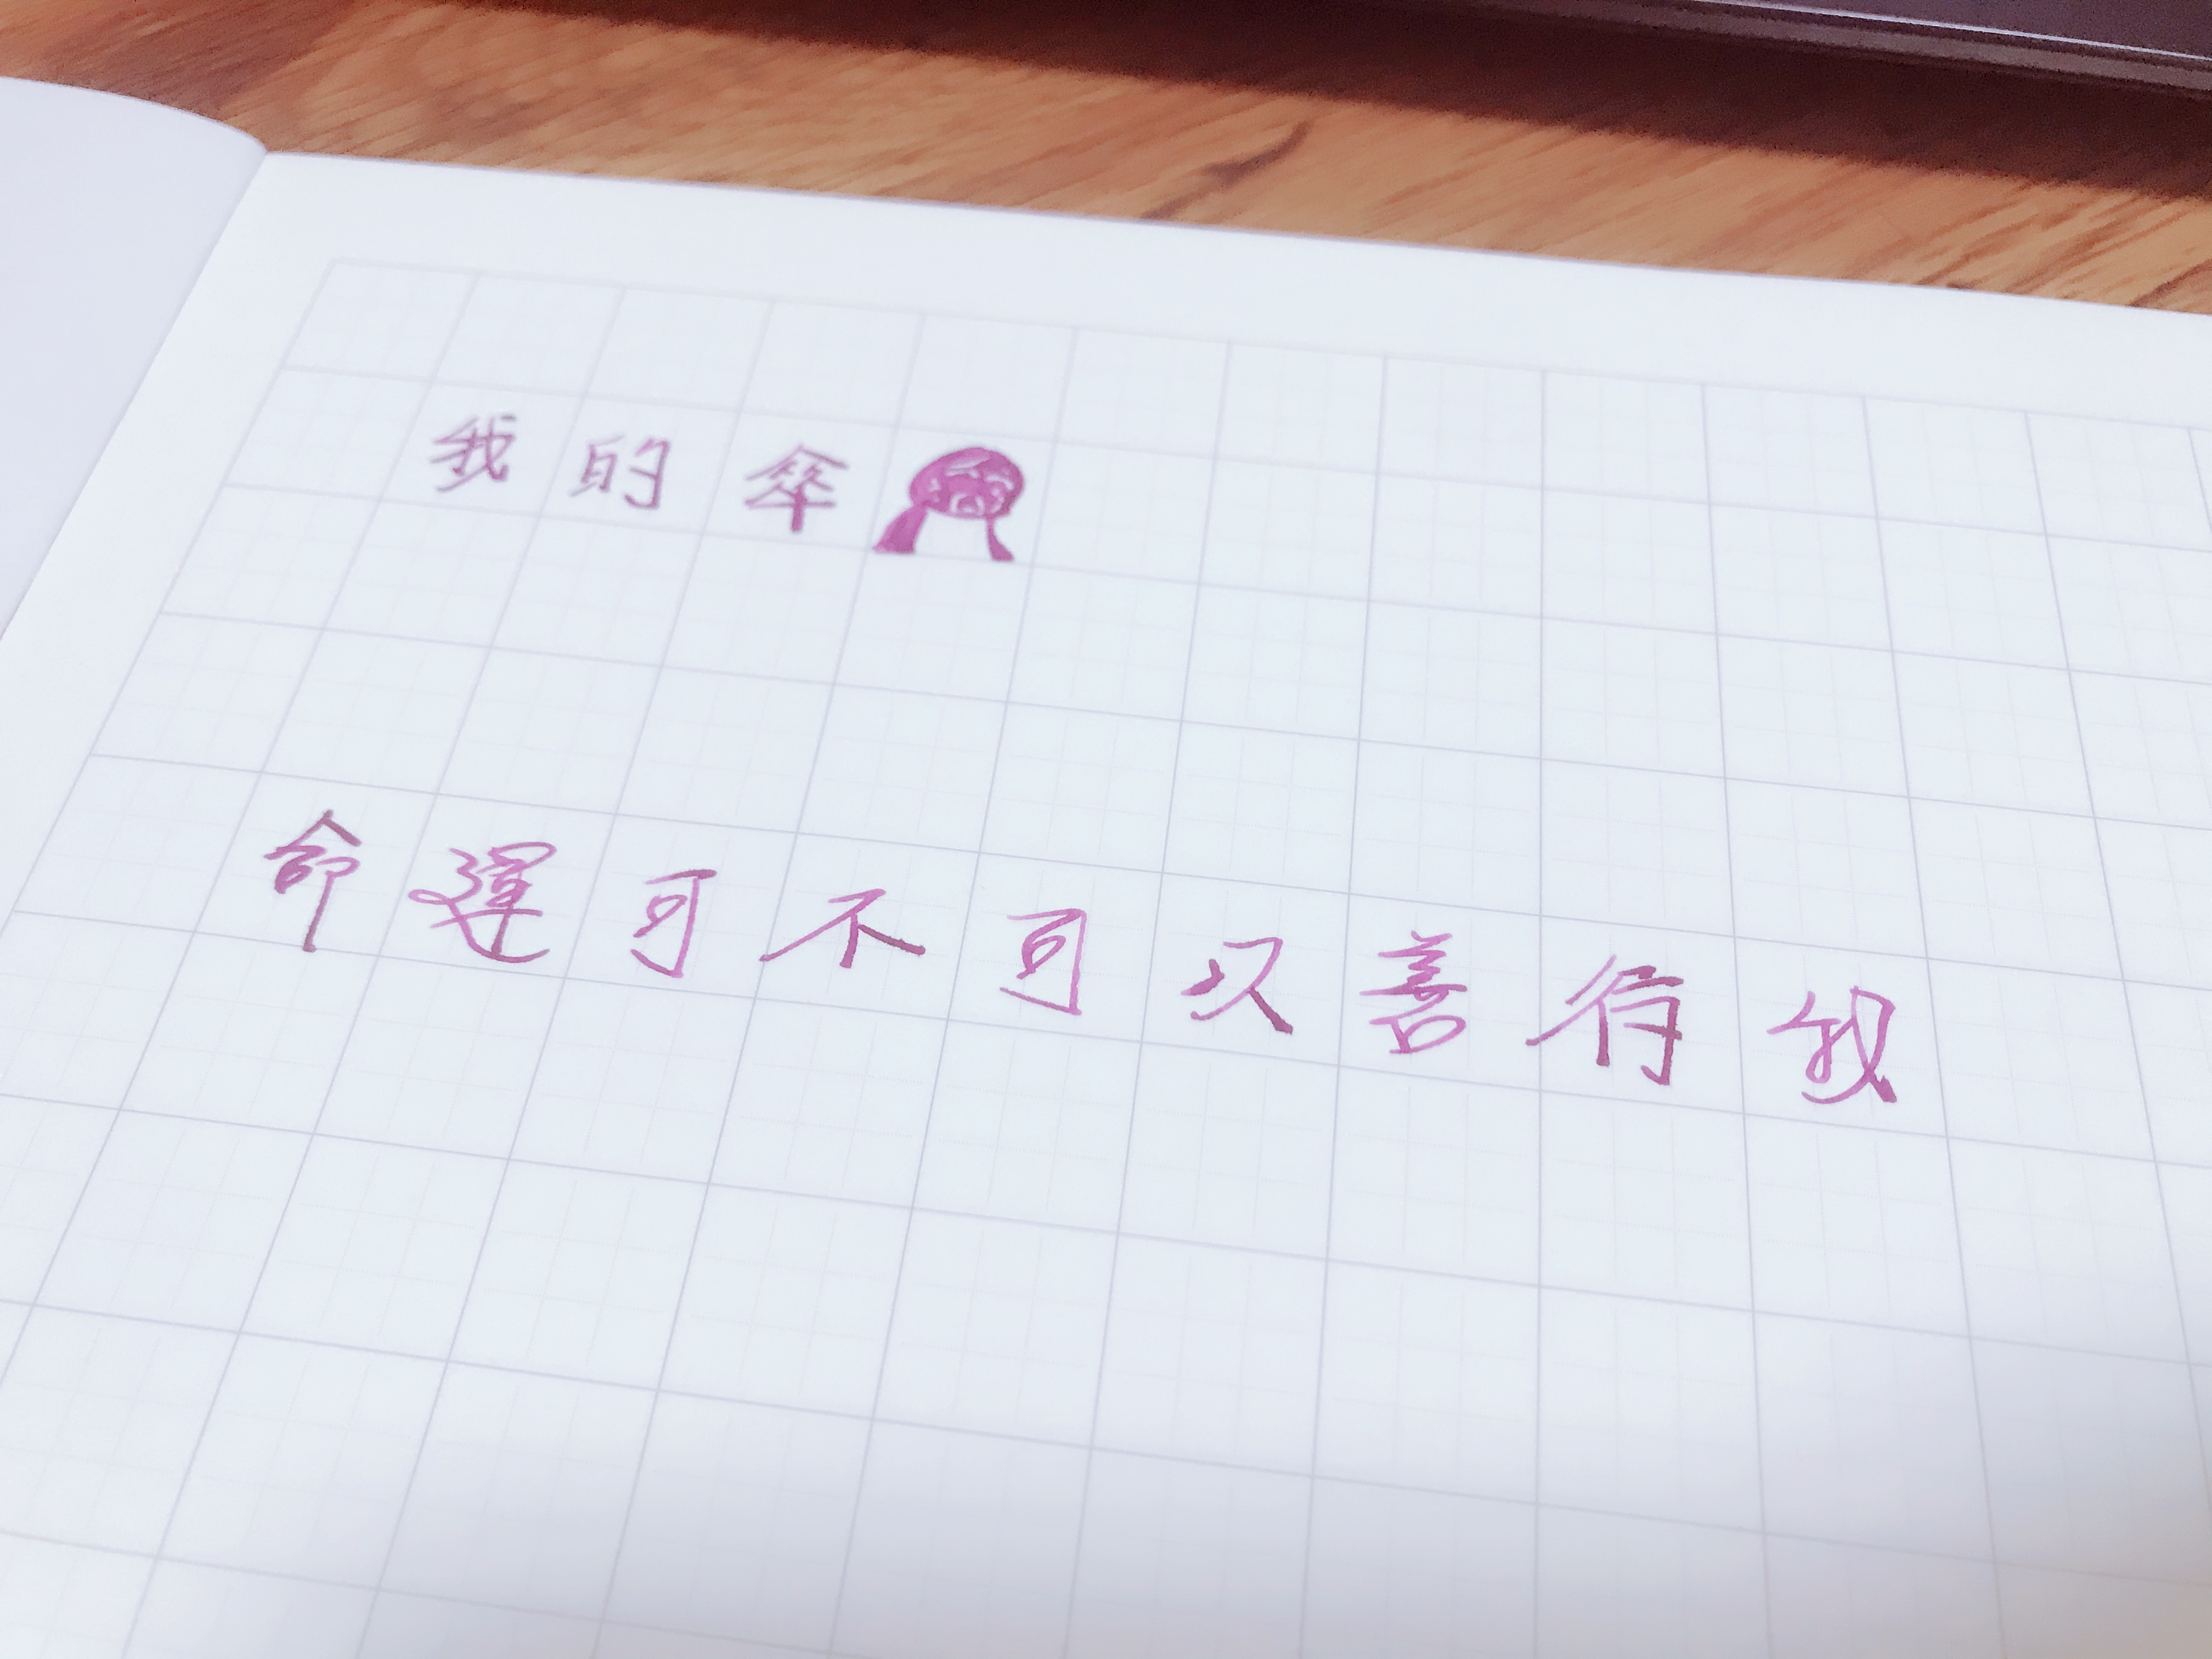 我的伞
命運可不可以善待我